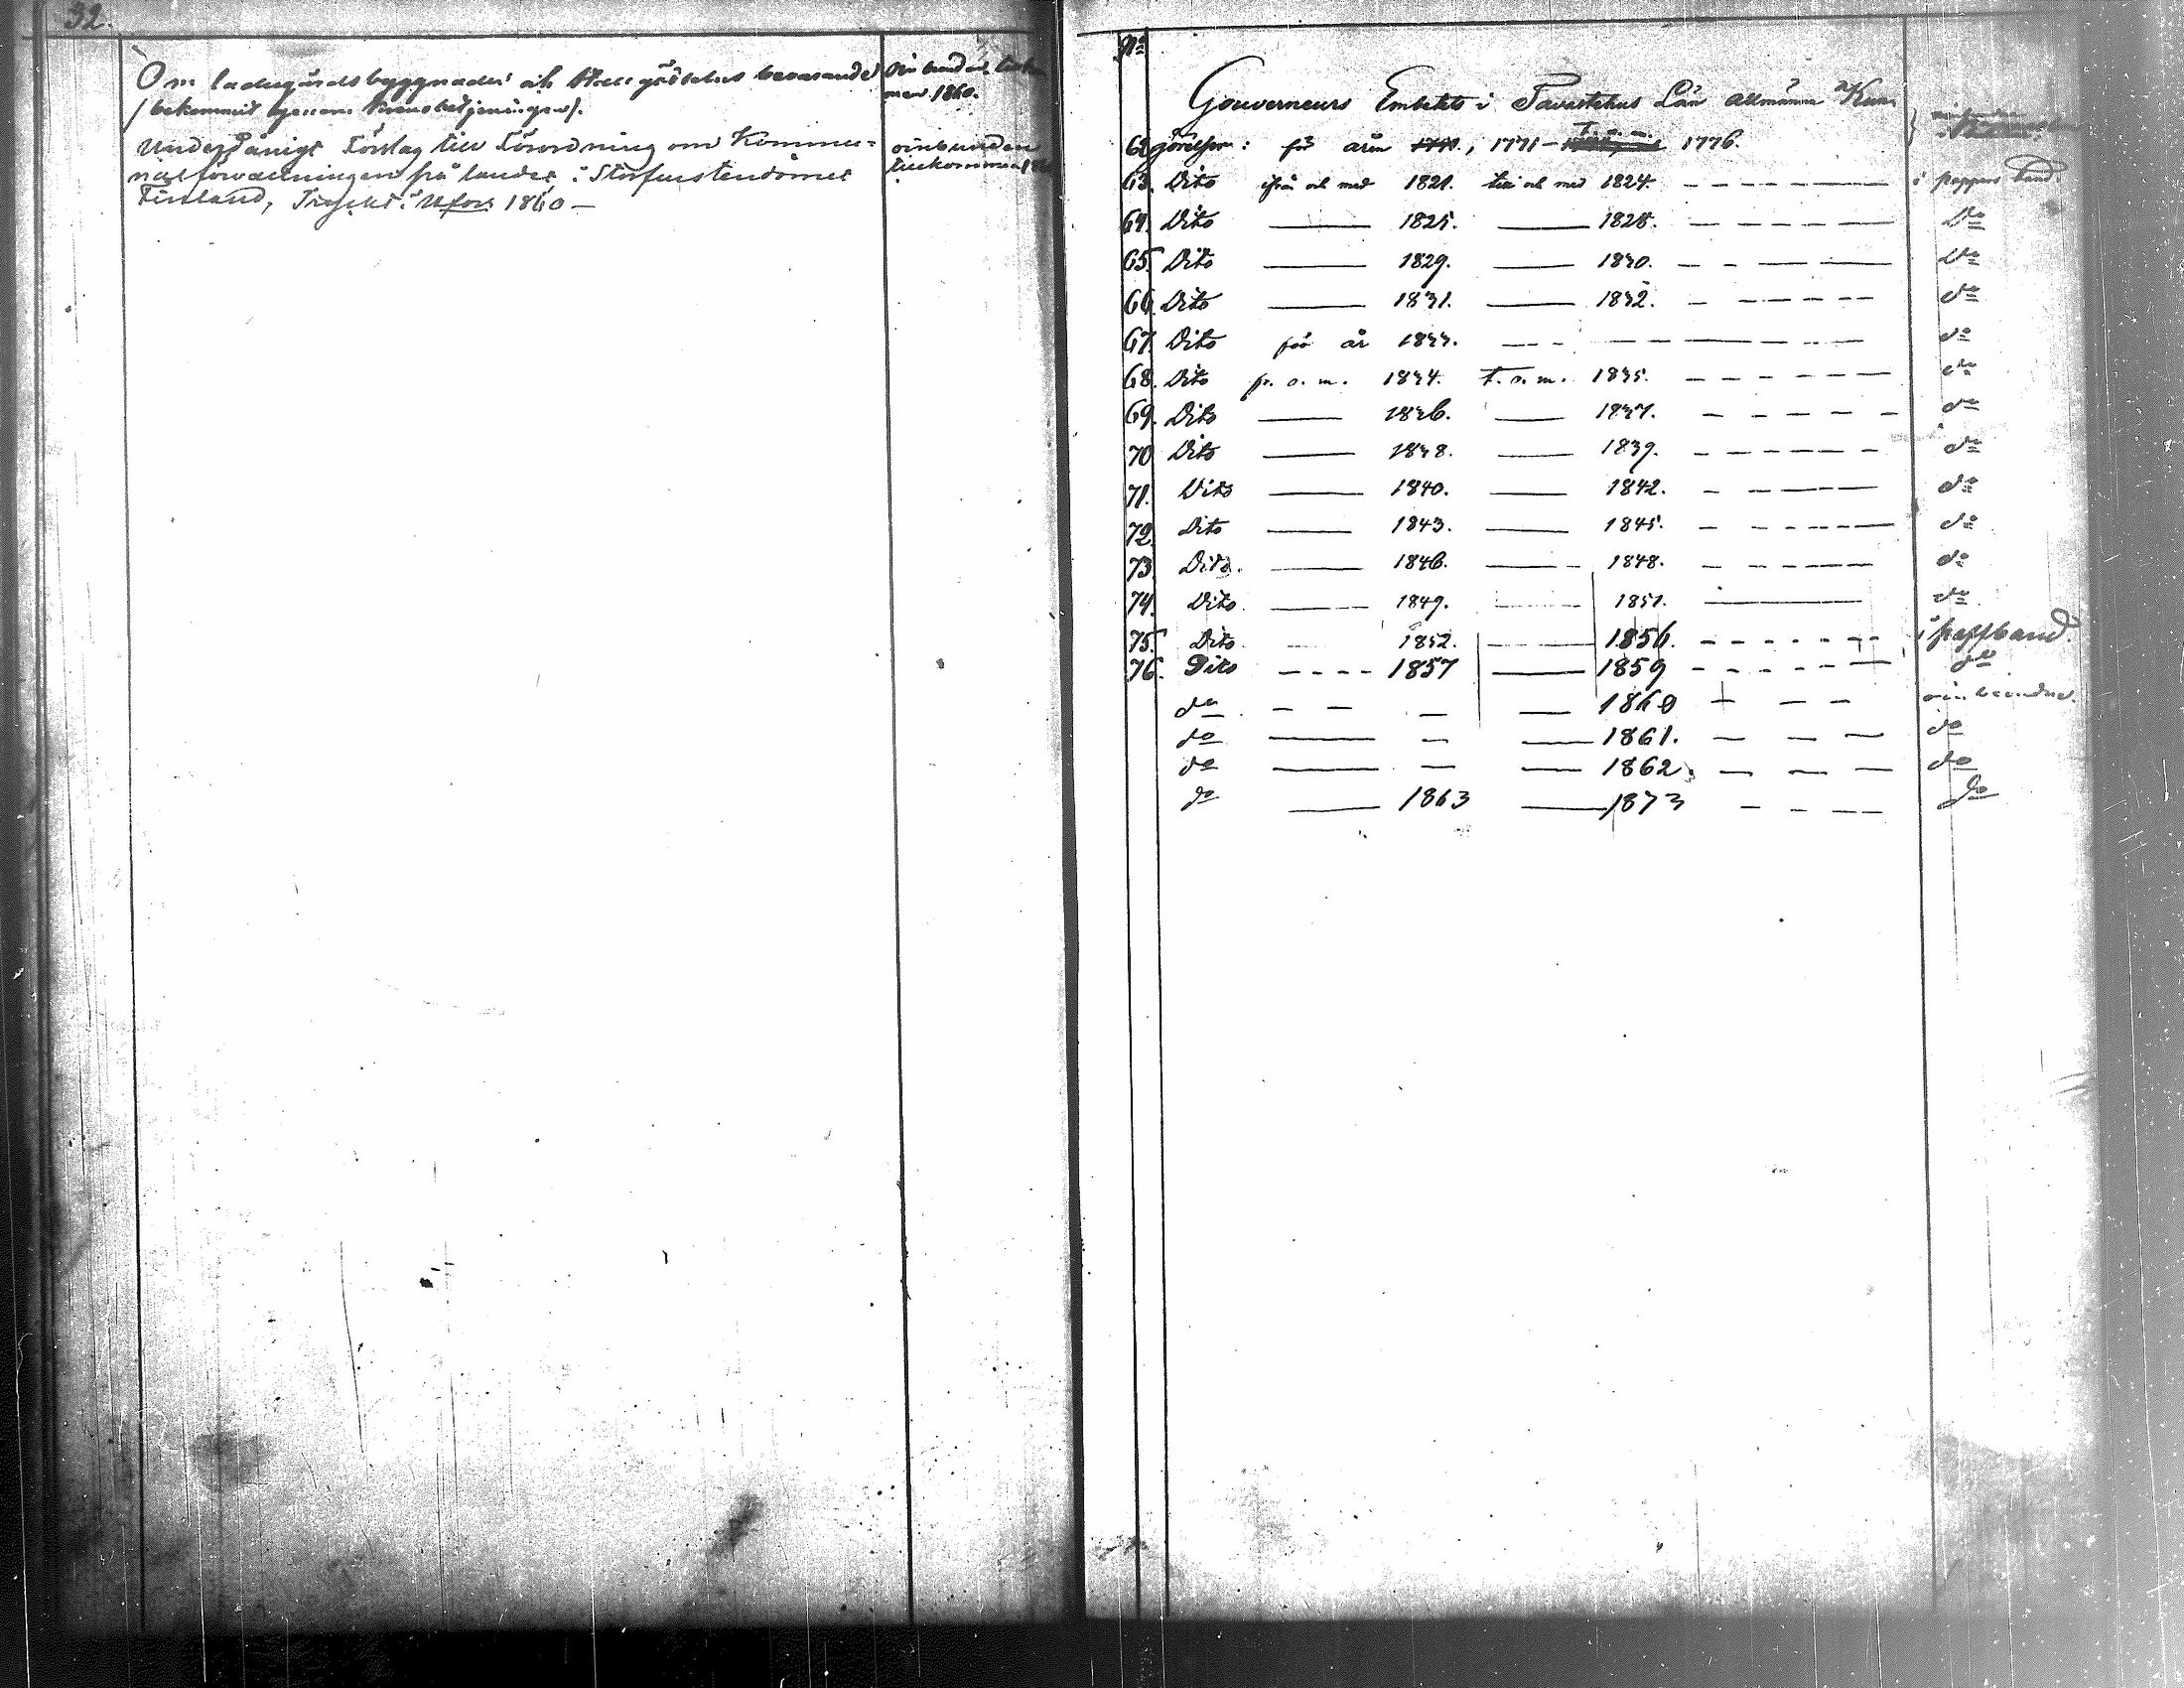 32.
Om ladugårdsbyggnader och
/bekommit genom
oinbunden
men 1860.
Underdånigt Förslag till Förordning om Kommu=
nalförvaltningen på landet i Storfurstendömet
Finland, Tryckt i H:fors 1860 —
oinbunden
tillkommen
No
Gouverneurs Embetets i Tavastehus Län allmänna Kun-
62 görelser: för åren 1771 – 1776.
63. Dito ifrån och med 1821. till och med 1824. i pappers band
64. Dito 1825. 1828. Do
65. Dito 1829. 1830. Do
66. Dito 1831. 1832. do
67. Dito för år 1833. do
68. Dito fr. o. m. 1834. t. o. m. 1835. do
69. Dito 1836. 1837. do
70 Dito 1838. 1839. do
71. Dito 1840. 1842. do
72. Dito 1843. 1845. do
73. Dito. 1846. 1848. do
74. Dito 1849. 1851. do
75. Dito 1852. 1856. i pappband
76. Dito 1857 1859 do
do 1860 oinbundne
do 1861. do
do 1862. do
do 1863 1873 do